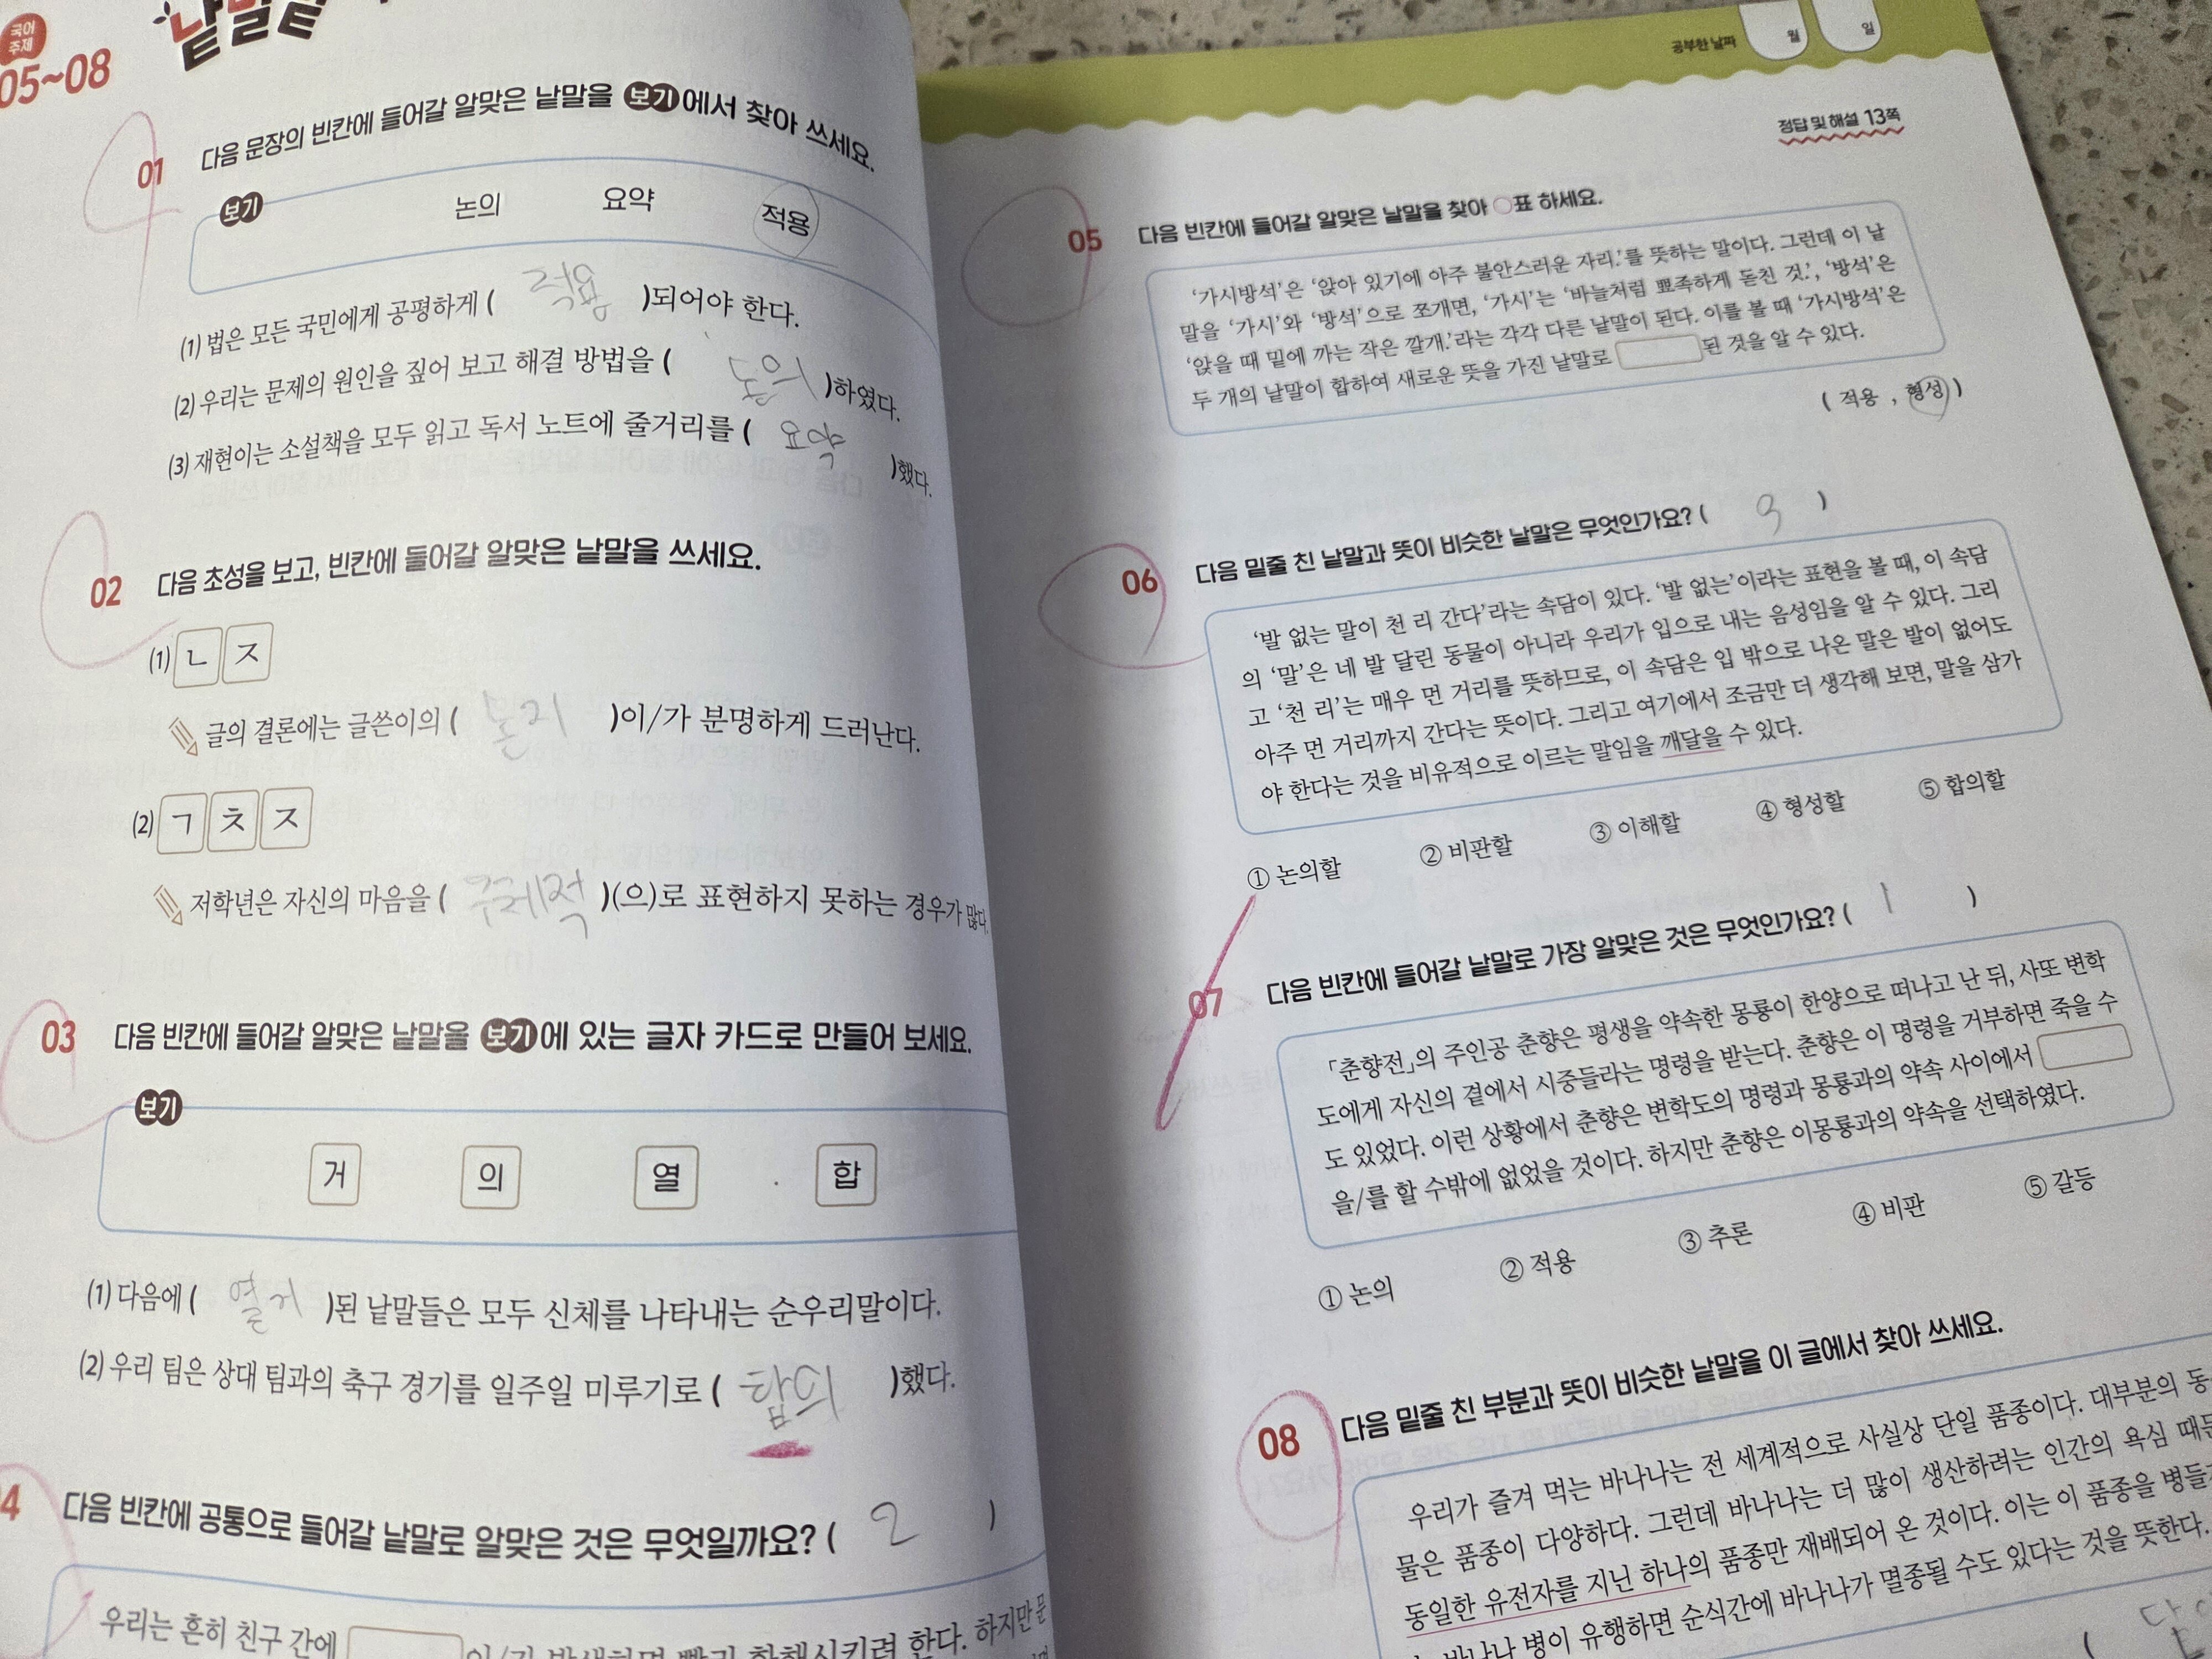 국어
주제
05~08
낱말
01 다음 문장의 빈칸에 들어갈 알맞은 낱말을 보기에서 찾아 쓰세요.
보기 논의 요약 적용
(1) 법은 모든 국민에게 공평하게 ( 적용 )되어야 한다.
(2) 우리는 문제의 원인을 짚어 보고 해결 방법을 ( 논의 )하였다.
(3) 재현이는 소설책을 모두 읽고 독서 노트에 줄거리를 ( 요약 )했다.
02 다음 초성을 보고, 빈칸에 들어갈 알맞은 낱말을 쓰세요.
(1) ㄴ ㅈ
글의 결론에는 글쓴이의 ( 논지 )이/가 분명하게 드러난다.
(2) ㄱ ㅊ ㅈ
저학년은 자신의 마음을 ( 구체적 )(으)로 표현하지 못하는 경우가 많다.
03 다음 빈칸에 들어갈 알맞은 낱말을 보기에 있는 글자 카드로 만들어 보세요.
보기
거 의 열 합
(1) 다음에 ( 열거 )된 낱말들은 모두 신체를 나타내는 순우리말이다.
(2) 우리 팀은 상대 팀과의 축구 경기를 일주일 미루기로 ( 합의 )했다.
4 다음 빈칸에 공통으로 들어갈 낱말로 알맞은 것은 무엇일까요? ( 2 )
우리는 흔히 친구 간에 이/가 발생하면 빨리 화해시키려 한다. 하지만
공부한 날짜 월 일
정답 및 해설 13쪽
05 다음 빈칸에 들어갈 알맞은 낱말을 찾아 ○표 하세요.
‘가시방석’은 ‘앉아 있기에 아주 불안스러운 자리.’를 뜻하는 말이다. 그런데 이 낱
말을 ‘가시’와 ‘방석’으로 쪼개면, ‘가시’는 ‘바늘처럼 뾰족하게 돋친 것.’, ‘방석’은
‘앉을 때 밑에 까는 작은 깔개.’라는 각각 다른 낱말이 된다. 이를 볼 때 ‘가시방석’은
두 개의 낱말이 합하여 새로운 뜻을 가진 낱말로 된 것을 알 수 있다.
( 적용 , 형성 )
06 다음 밑줄 친 낱말과 뜻이 비슷한 낱말은 무엇인가요? ( 3 )
‘발 없는 말이 천 리 간다’라는 속담이 있다. ‘발 없는’이라는 표현을 볼 때, 이 속담
의 ‘말’은 네 발 달린 동물이 아니라 우리가 입으로 내는 음성임을 알 수 있다. 그리
고 ‘천 리’는 매우 먼 거리를 뜻하므로, 이 속담은 입 밖으로 나온 말은 발이 없어도
아주 먼 거리까지 간다는 뜻이다. 그리고 여기에서 조금만 더 생각해 보면, 말을 삼가
야 한다는 것을 비유적으로 이르는 말임을 깨달을 수 있다.
① 논의할 ② 비판할 ③ 이해할 ④ 형성할 ⑤ 합의할
07 다음 빈칸에 들어갈 낱말로 가장 알맞은 것은 무엇인가요? ( 1 )
「춘향전」의 주인공 춘향은 평생을 약속한 몽룡이 한양으로 떠나고 난 뒤, 사또 변학
도에게 자신의 곁에서 시중들라는 명령을 받는다. 춘향은 이 명령을 거부하면 죽을 수
도 있었다. 이런 상황에서 춘향은 변학도의 명령과 몽룡과의 약속 사이에서
을/를 할 수밖에 없었을 것이다. 하지만 춘향은 이몽룡과의 약속을 선택하였다.
① 논의 ② 적용 ③ 추론 ④ 비판 ⑤ 갈등
08 다음 밑줄 친 부분과 뜻이 비슷한 낱말을 이 글에서 찾아 쓰세요.
우리가 즐겨 먹는 바나나는 전 세계적으로 사실상 단일 품종이다. 대부분의
물은 품종이 다양하다. 그런데 바나나는 더 많이 생산하려는 인간의 욕심
동일한 유전자를 지닌 하나의 품종만 재배되어 온 것이다. 이는 이 품종을
바나나 병이 유행하면 순식간에 바나나가 멸종될 수도 있다는 것을 뜻한다.